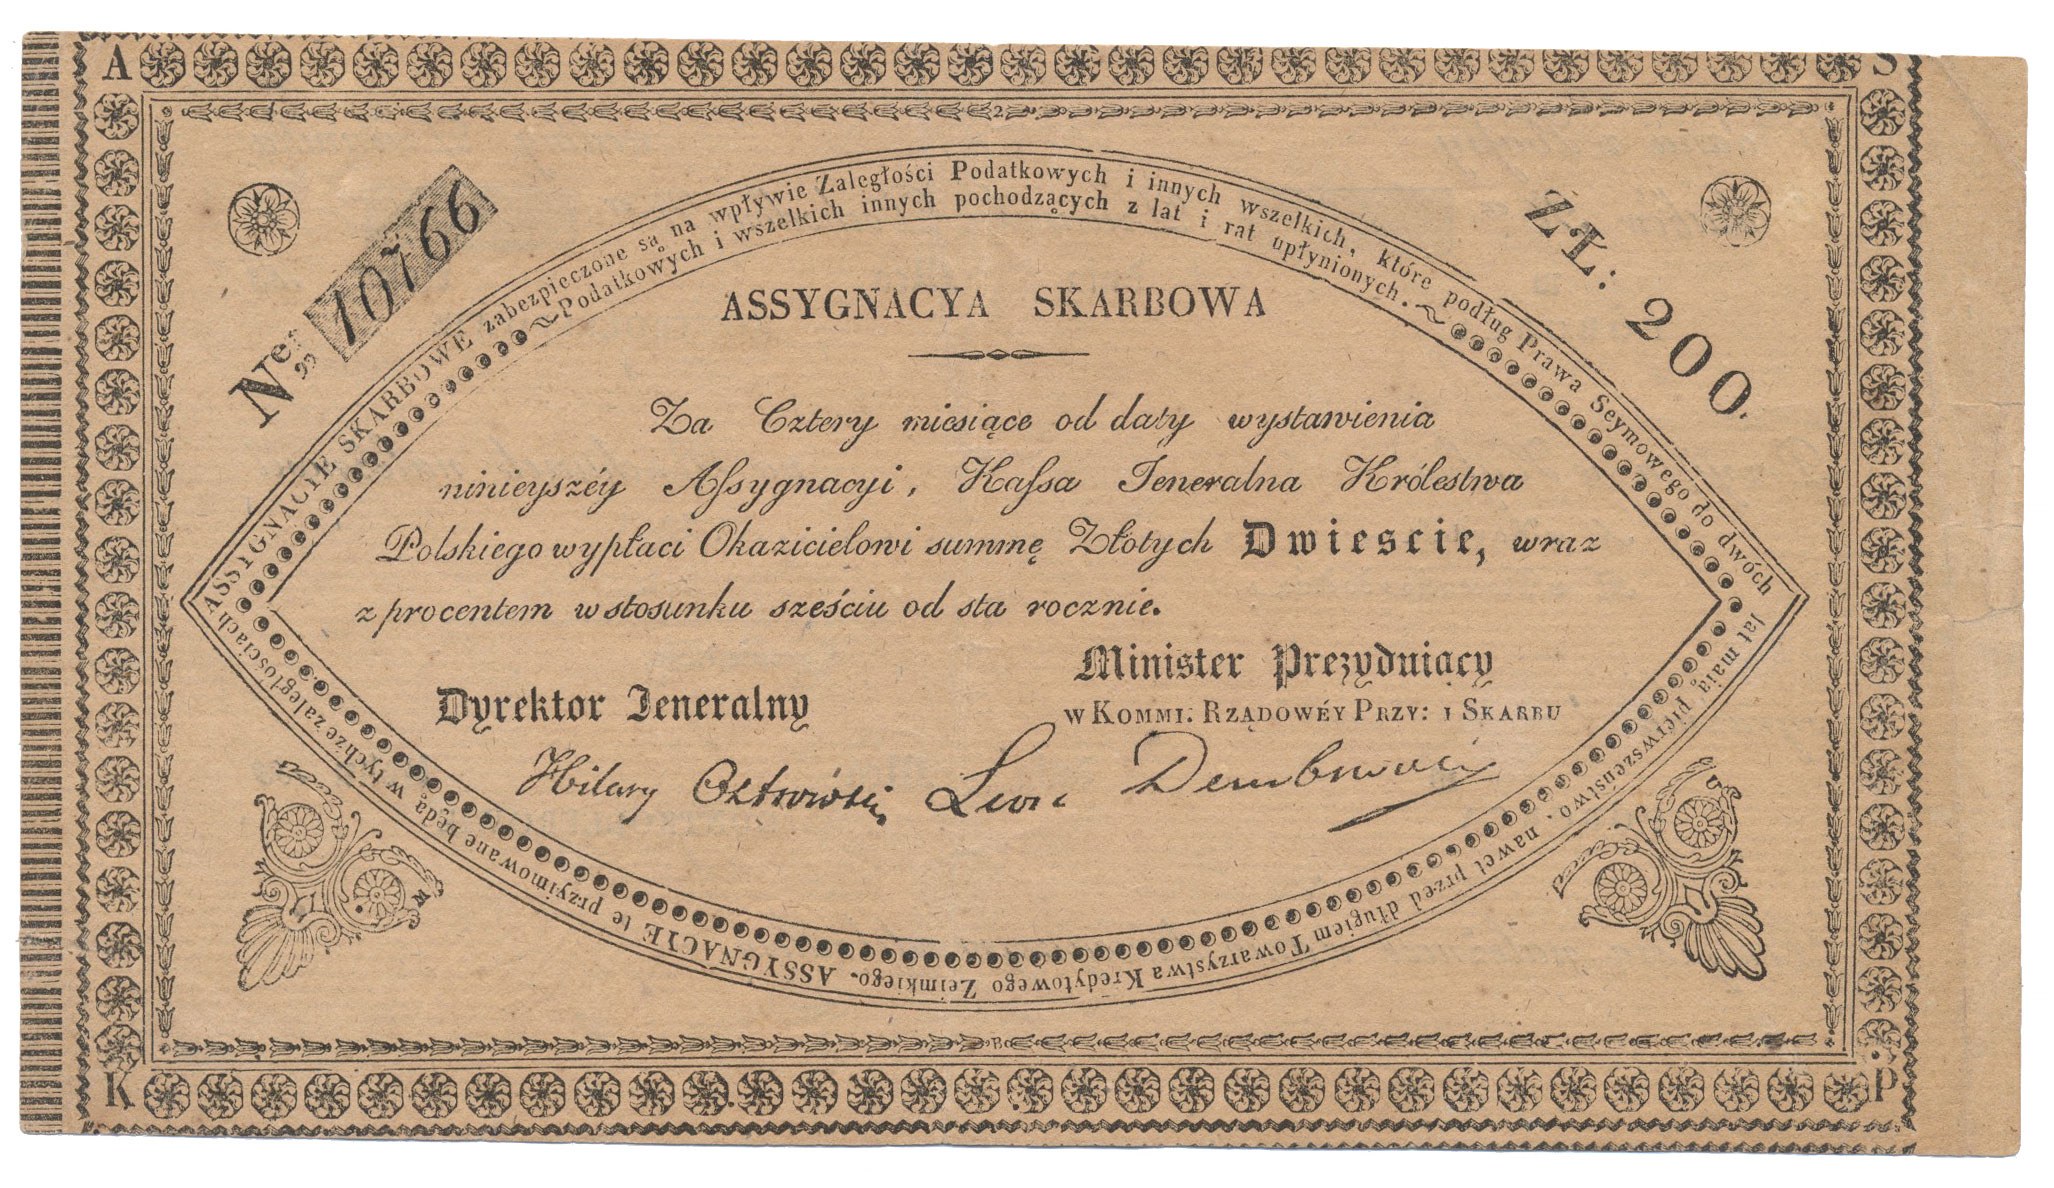 A S
Ner 10766
ZŁ: 200.
ASSYGNACIE SKARBOWE zabezpieczone są na wpływie Zaległości Podatkowych i innych wszelkich, które podług Prawa Seymowego do dwóch
lat maią pierwszeństwo, nawet przed długiem Towarzystwa Kredytowego Zeimkiego. ASSYGNACIE te przyimowane będą w tychże zaległościach
Podatkowych i wszelkich innych pochodzących z lat i rat upłynionych.
ASSYGNACYA SKARBOWA
Za Cztery miesiące od daty wystawienia
ninieyszéy Assygnacyi, Kassa Jeneralna Królestwa
Polskiego wypłaci Okazicielowi summę Złotych Dwiescie, wraz
z procentem w stosunku sześciu od sta rocznie.
Minister Prezyduiący
Dyrektor Jeneralny
w Kommi: Rządowéy Przy: i Skarbu
Hilary Ostrowski Leon Dembowski
K P